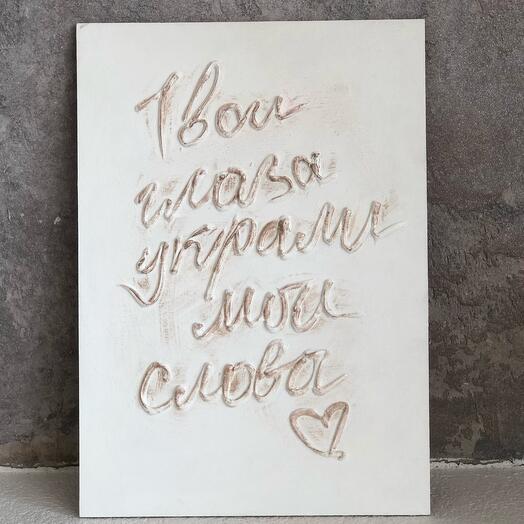 Твои
глаза
украли
мои
слова